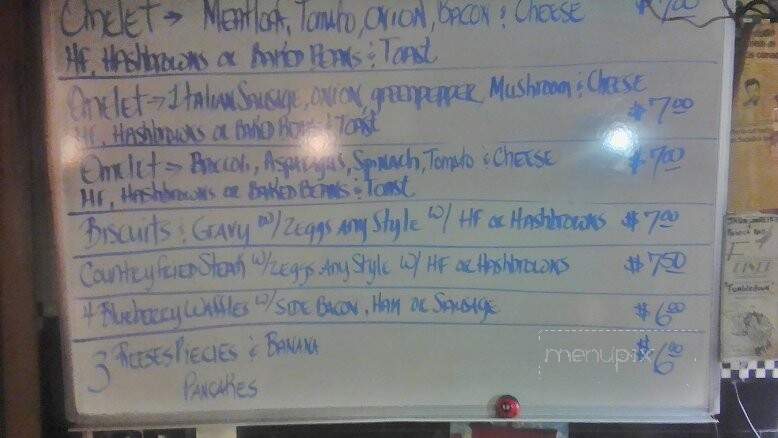 Omelet → Meatloaf, Tomato, Onion, Bacon & Cheese $7.00
HF, Hashbrowns or Baked Beans & Toast
Omelet → Italian Sausage, onion, greenpepper, Mushroom & Cheese $7.00
HF, Hashbrowns or Baked Beans & Toast
Omelet → Broccoli, Asparagus, Spinach, Tomato & Cheese $7.00
HF, Hashbrowns or Baked Beans & Toast
Biscuits & Gravy w/ 2eggs Any Style w/ HF or Hashbrowns $7.00
Country Fried Steak w/ 2eggs Any Style w/ HF or Hashbrowns $7.50
4 Blueberry Waffles w/ Side Bacon, Ham or Sausage $6.00
3 Reeses Piecies & Banana $6.00
Pancakes
menupix
"Tumbledown"